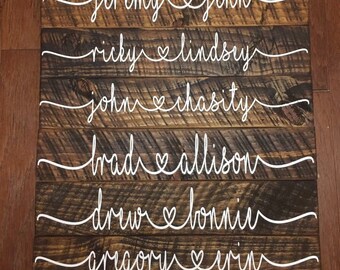 jeremy ♡ jenn
ricky ♡ lindsey
john ♡ chasity
brad ♡ allison
drew ♡ bonnie
gregory ♡ erin